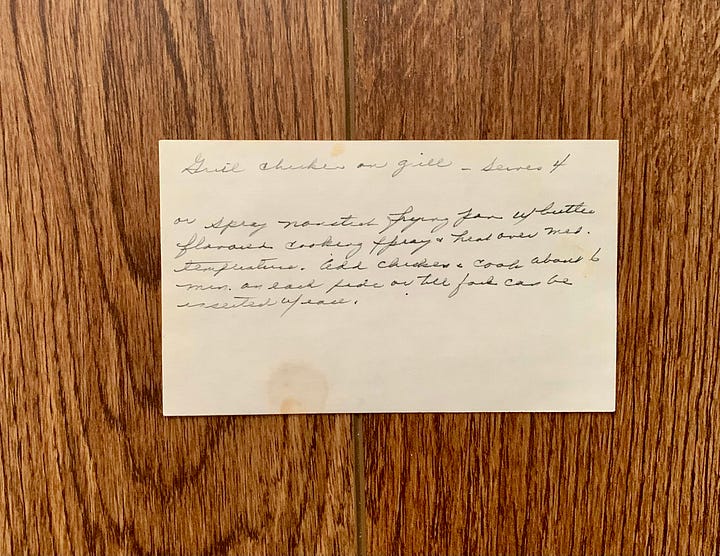 Grill chicken on grill - Serves 4
or spray nonstick frying pan w butter
flavored cooking spray & heat over med.
temperature. Add chicken & cook about 6
min. on each side or till fork can be
inserted w/ease.